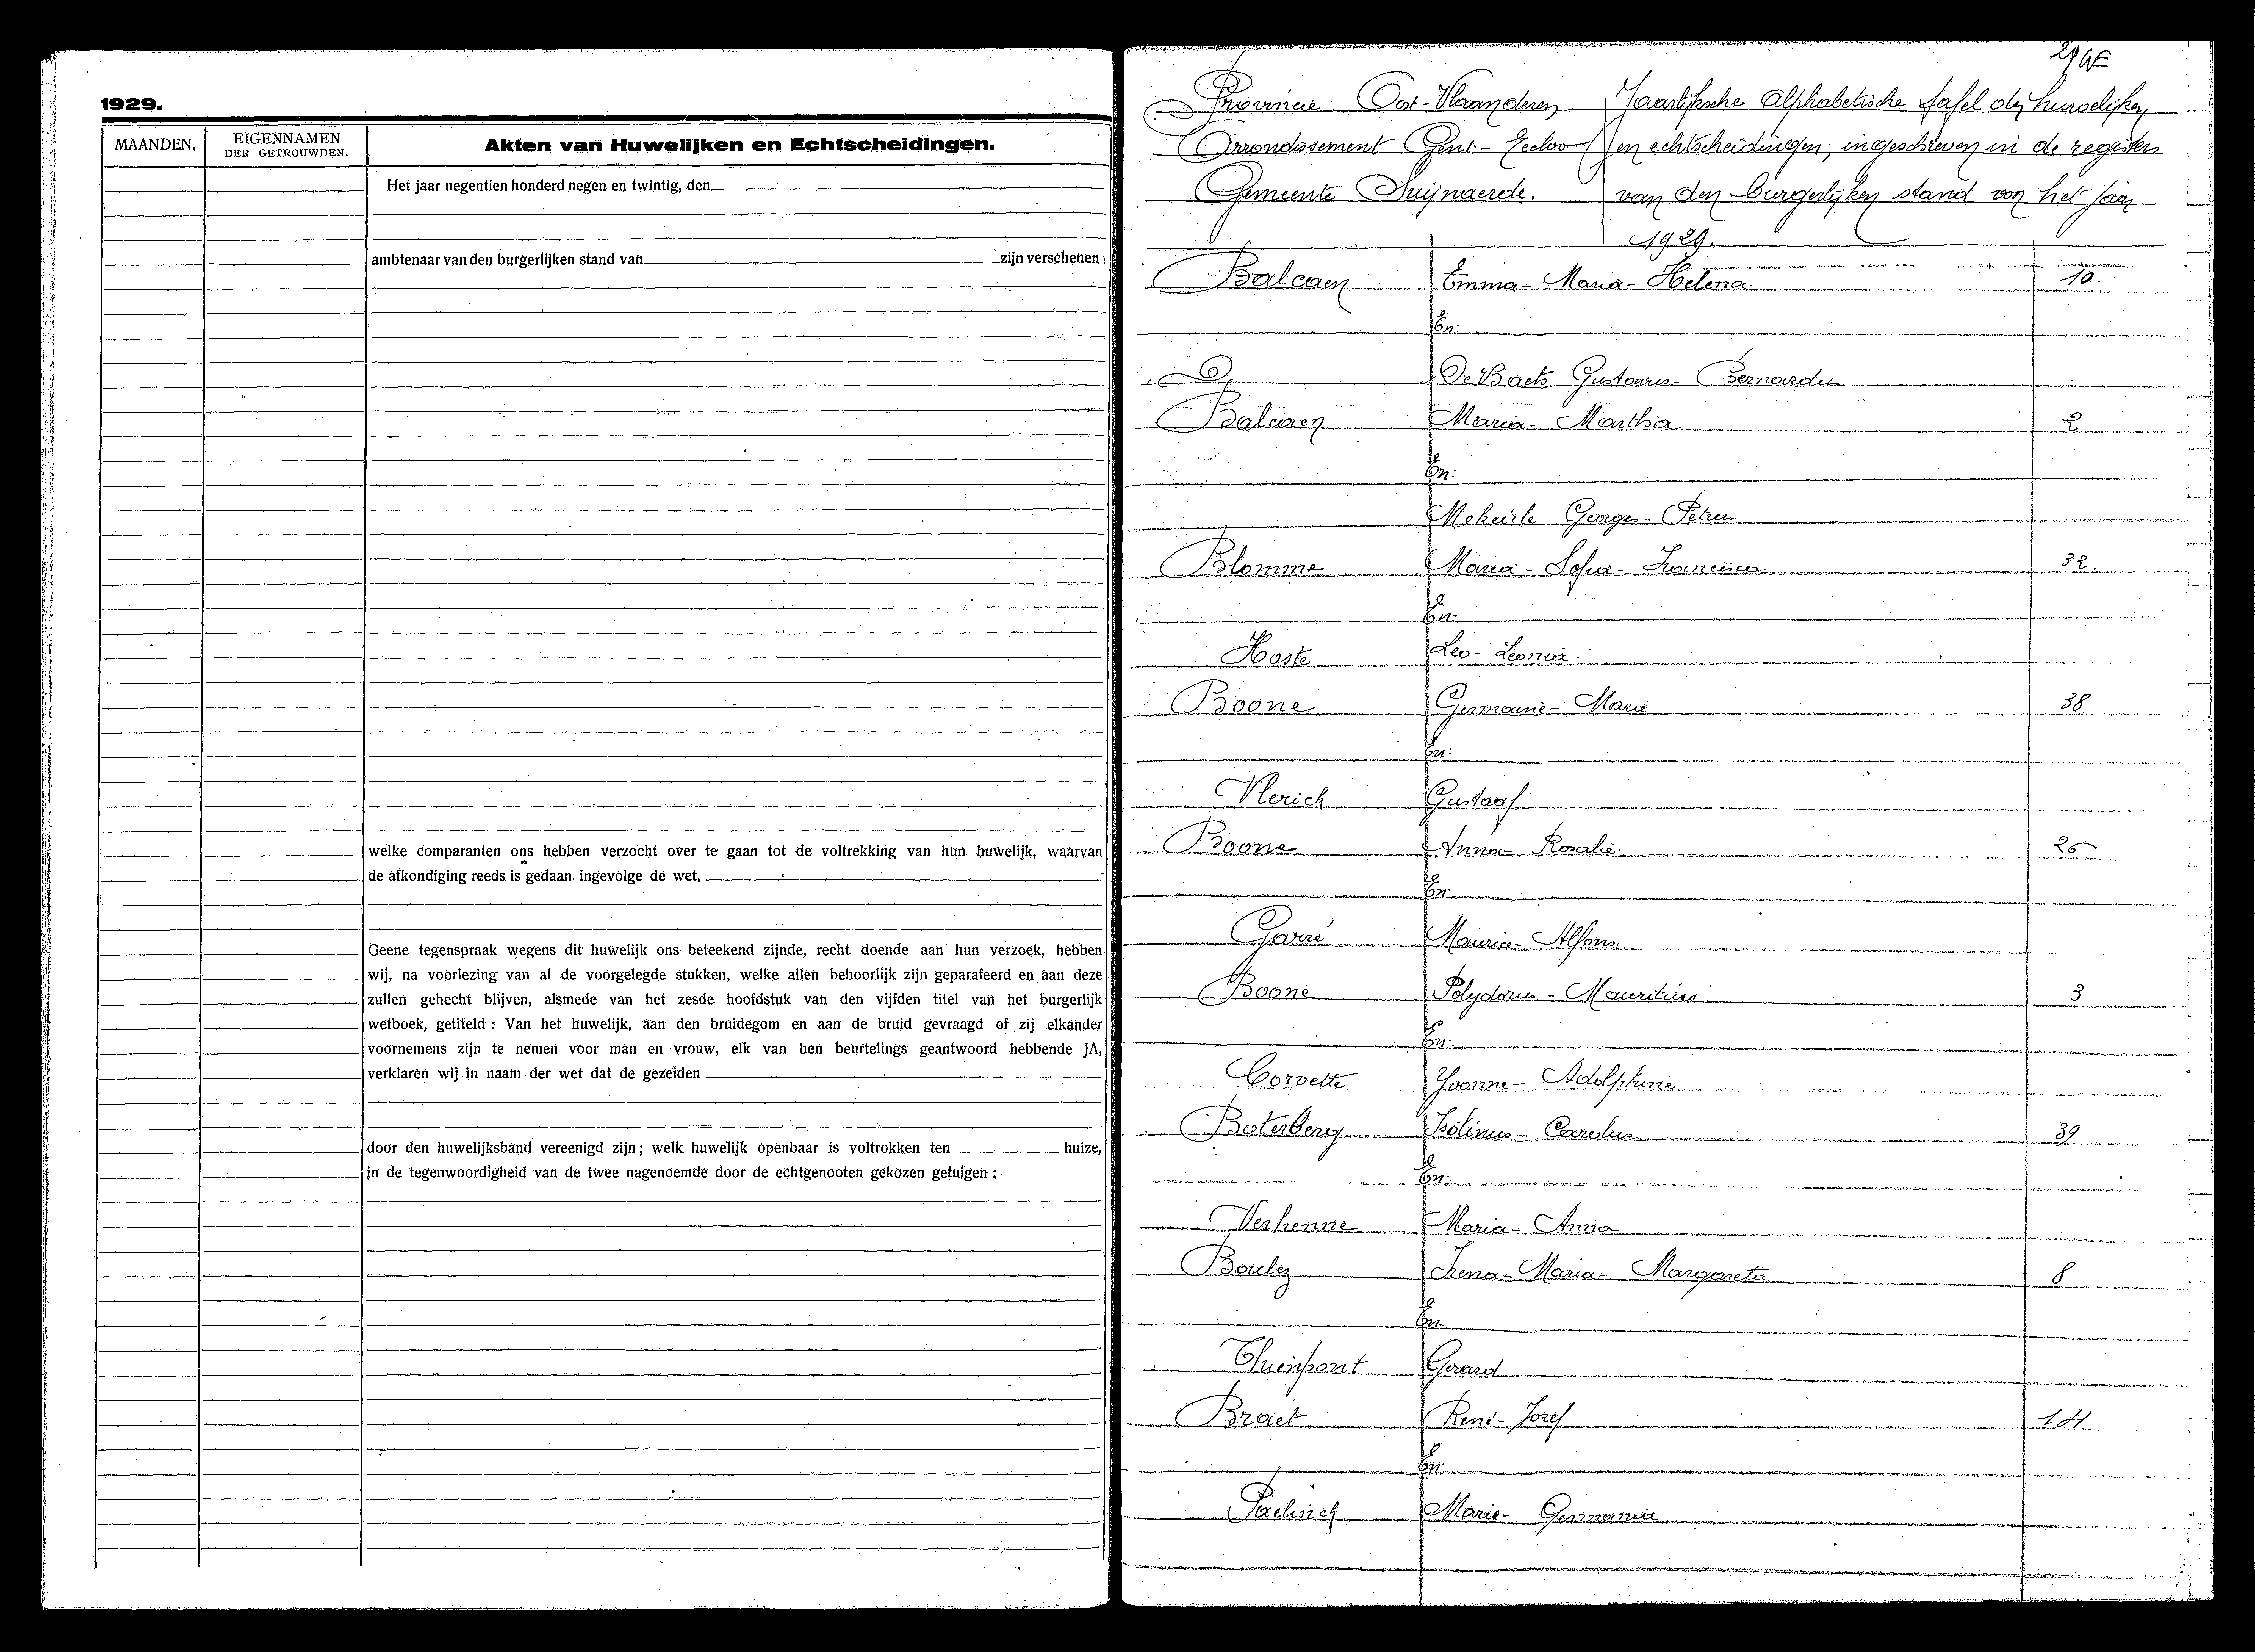 1929.
MAANDEN.
EIGENNAMEN
DER GETROUWDEN.
Akten van Huwelijken en Echtscheidingen.
Het jaar negentien honderd negen en twintig, den
ambtenaar van den burgerlijken stand van zijn verschenen:
welke comparanten ons hebben verzocht over te gaan tot de voltrekking van hun huwelijk, waarvan
de afkondiging reeds is gedaan ingevolge de wet.
Geene tegenspraak wegens dit huwelijk ons beteekend zijnde, recht doende aan hun verzoek, hebben
wij, na voorlezing van al de voorgelegde stukken, welke allen behoorlijk zijn geparafeerd en aan deze
zullen gehecht blijven, alsmede van het zesde hoofdstuk van den vijfden titel van het burgerlijk
wetboek, getiteld : Van het huwelijk, aan den bruidegom en aan de bruid gevraagd of zij elkander
voornemens zijn te nemen voor man en vrouw, elk van hen beurtelings geantwoord hebbende JA,
verklaren wij in naam der wet dat de gezeiden
door den huwelijksband vereenigd zijn; welk huwelijk openbaar is voltrokken ten huize,
in de tegenwoordigheid van de twee nagenoemde door de echtgenooten gekozen getuigen :
Provincie Oost-Vlaanderen
Arrondissement Gent-Eecloo
Gemeente Swijnaerde.
Jaarlijksche Alphabetische tafel der huwelijken
en echtscheidingen, ingeschreven in de registers
van den burgerlijken stand van het jaar
1929.
Balcaen Emma-Maria-Helena 10.
En:
De Baets Gustavus-Bernardus
Balcaen Maria-Martha 2
En:
Mekeirle Georges-Petrus
Blomme Maria-Sofia-Francisca 32.
En:
Hoste Leo-Leonia
Boone Germaine-Marie 38
En:
Vlerick Gustaaf
Boone Anna-Rosalie 25
En
Garré Maurice-Alfons
Boone Polydorus-Mauritius 3
En:
Corvette Yvonne-Adolphine
Boterberg Isolinus-Carolus 39
En:
Verhenne Maria-Anna
Boulez Irena-Maria-Margareta 8
En
Thienpont Gerard
Braet René-Jozef 14
En:
Paelinck Marie-Germania